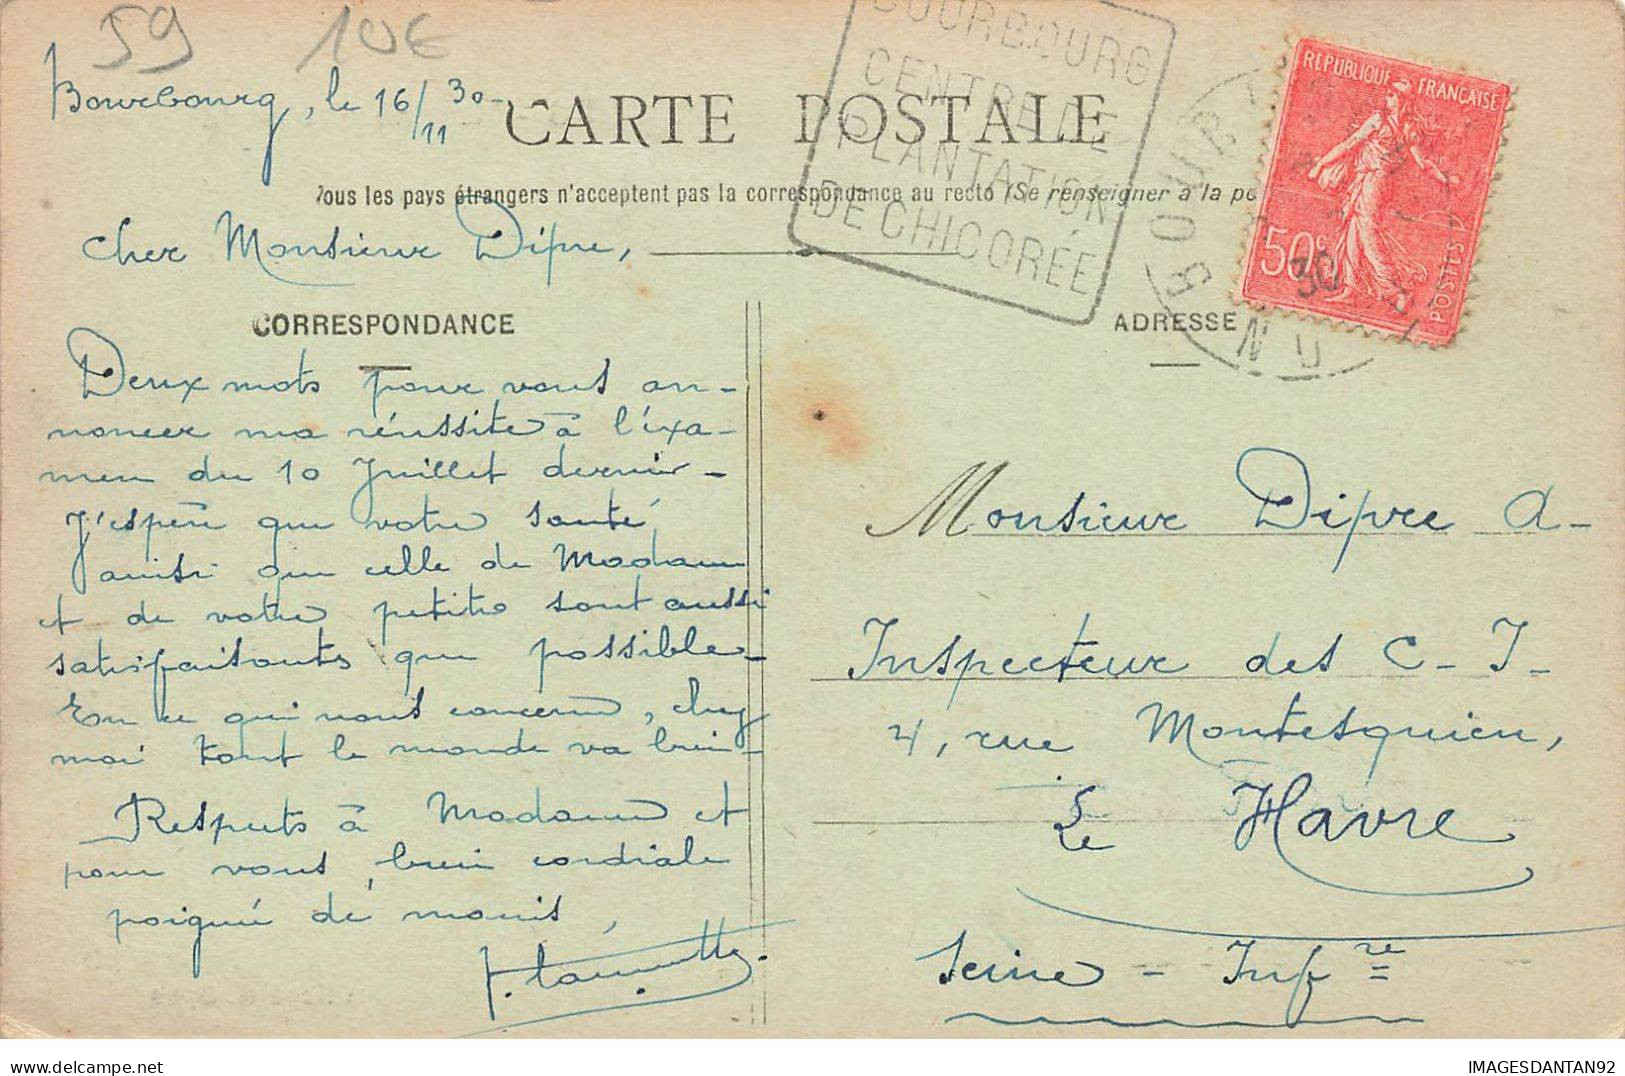 59 10€
Bourbourg, le 16/11 30-
CARTE POSTALE
Tous les pays étrangers n'acceptent pas la correspondance au recto (Se renseigner à la po
BOURBOURG
CENTRE DE
PLANTATION
DE CHICORÉE
BOURB
NORD
30
REPUBLIQUE FRANÇAISE
50c
POSTES
Cher Monsieur Dipre,
CORRESPONDANCE
ADRESSE
Deux mots pour vous an-
noncer ma réussite à l'éxa-
men du 10 Juillet dernier -
J'espère que votre santé,
ainsi que celle de Madame
et de votre petite sont aussi
satisfaisantes que possible -
En ce qui nous concerne, chez
moi tout le monde va bien -
Respects à Madame et
pour vous, bien cordiale
poignée de mains,
Monsieur Dipre A-
Inspecteur des C- I-
4, rue Montesquieu,
Le Havre
Seine - Infre
IMAGESDANTAN92